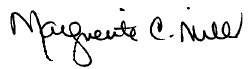 Marguerite C. Mill